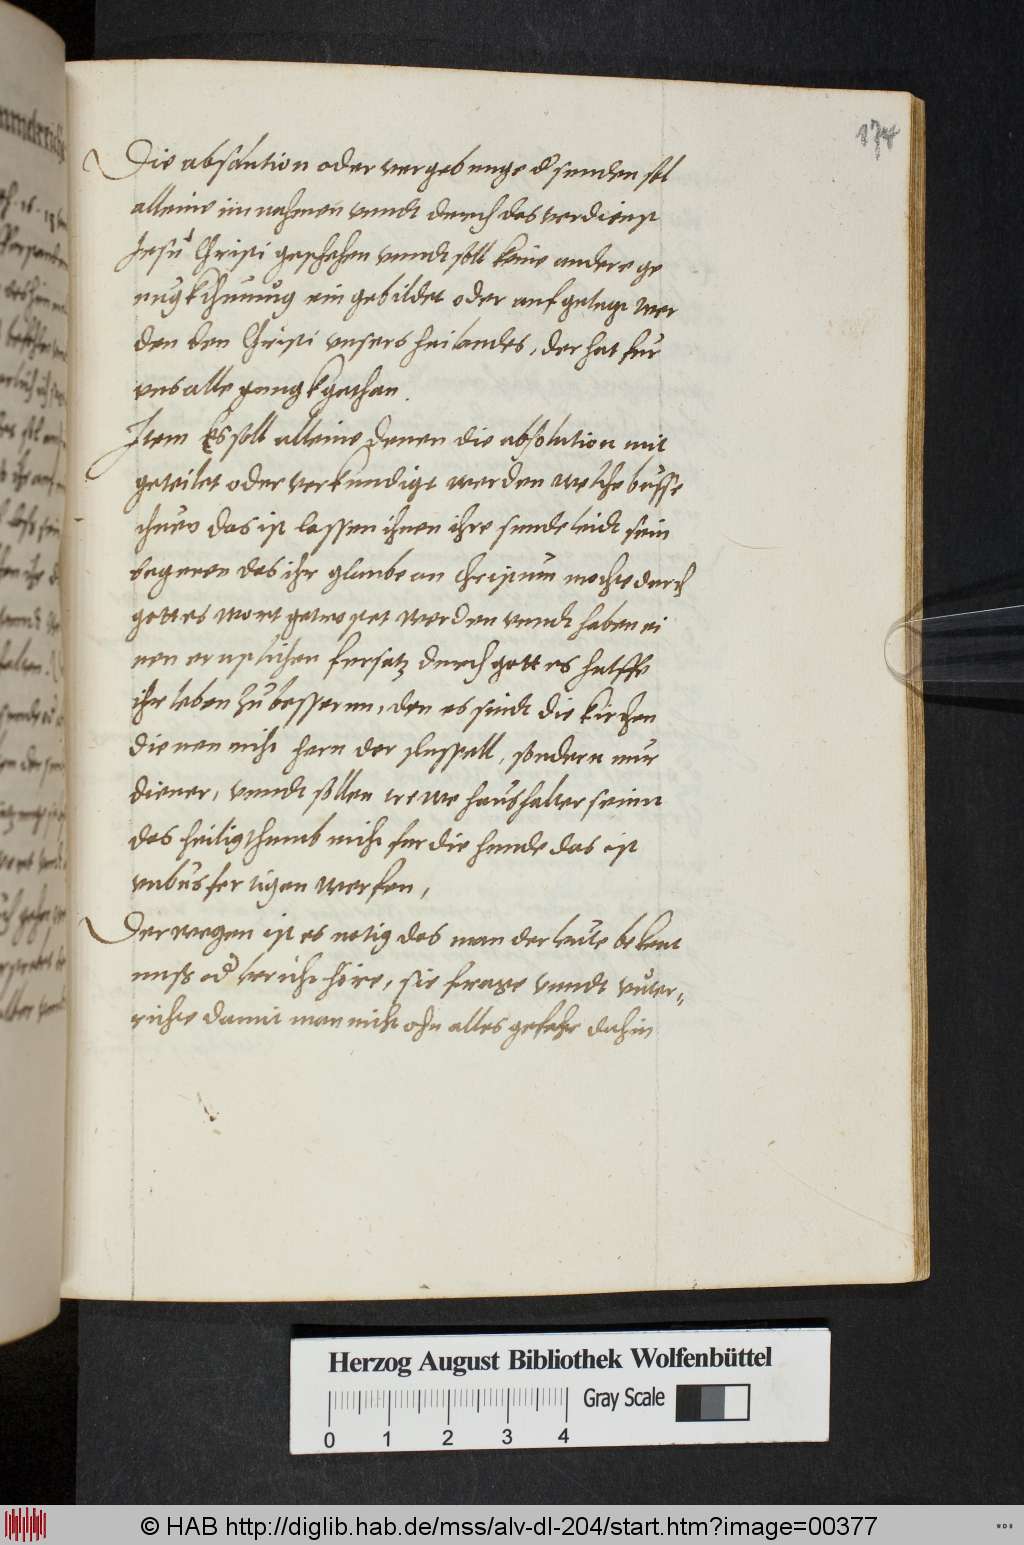 174
Die absolution oder vergebunge d' sunden sol
alleine im nahmen vnndt durch das verdienst
Jesu Christi geschehen vnndt soll keine andere ge
nugkthuung eingebildet oder aufgelegt wer
den den Christi vnsers heilandes, der hat fur
vns alle gnugk gethan.
Item Es soll alleine denen die absolution mit
geteilet oder verkundigt werden welche busse
thuen das ist lassen ihnen ihre sunde leidt sein
begeren das ihr glaube an Christum mochte durch
gottes wort getrostet werden vnndt haben ei
nen ernstlichen fursatz durch gottes hulffe
ihr leben zu bessernn, den es sindt die kirchen
diener nicht hern der slussell, sondern nur
diener, vnndt sollen trewe haushalter seinn
das heiligthumb nicht fur die hunde das ist
vnbusfertigen werfen,
Derwegen ist es notig das man der leute bekent
nuß od' bericht höre, sie frage vnndt vnter=
richte damit man nicht ohn alles gefehr dahin
Herzog August Bibliothek Wolfenbüttel
0 1 2 3 4
Gray Scale
© HAB http://diglib.hab.de/mss/alv-dl-204/start.htm?image=00377